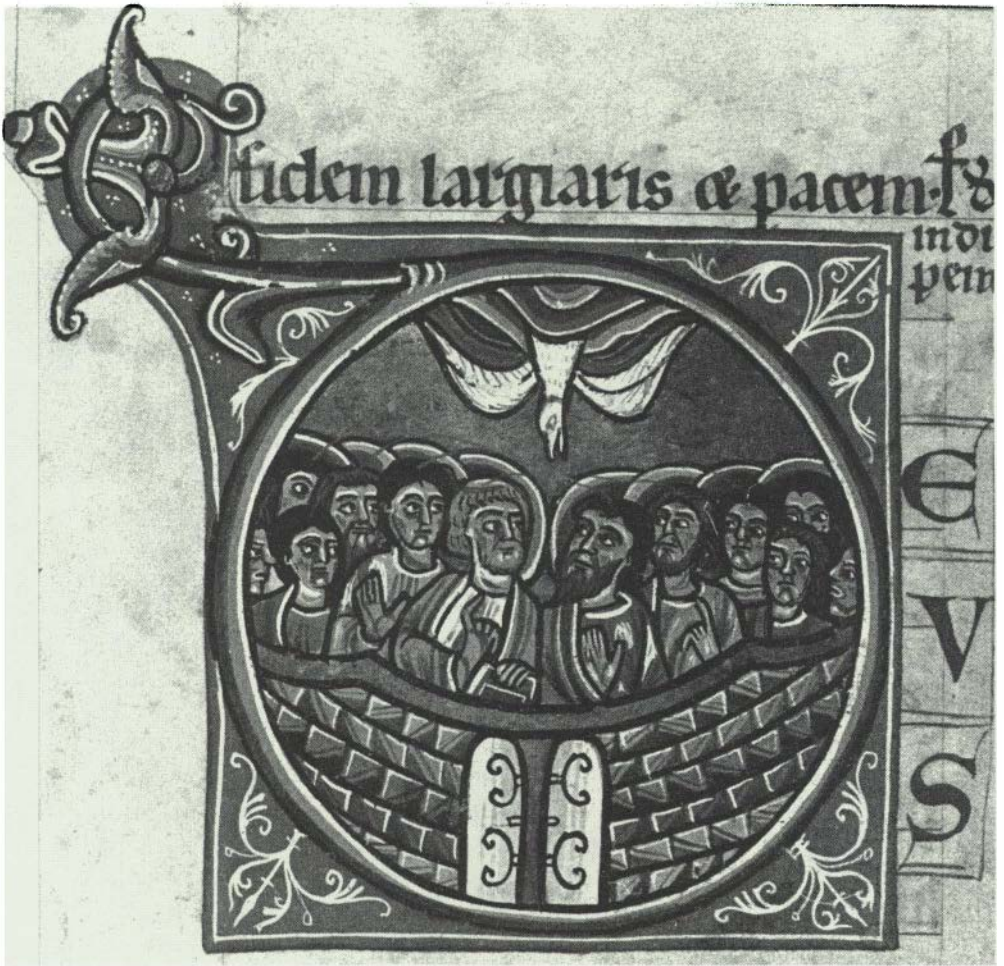 fidem largiaris & pacem.
indi
D
E
V
S